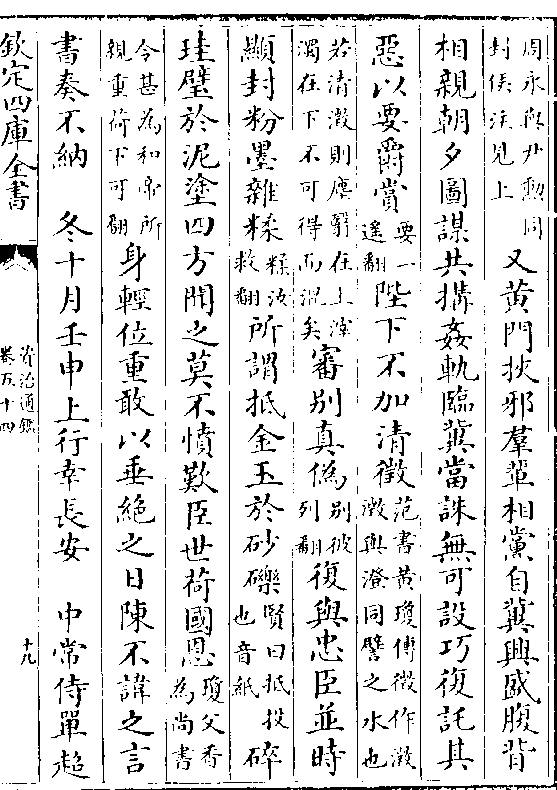 周永與尹勲同
封侯注見上
又黄門挾邪羣輩相黨自冀興盛腹背
相親朝夕圖謀共搆姦軌臨冀當誅無可設巧復託其
惡以要爵賞
要一
遥翻
陛下不加清徴
范書黄瓊傳徴作澂
澂與澄同譬之水也
若清澂則塵翳在上滓
濁在下不可得而混矣
審别真偽
别彼
列翻
復與忠臣並時
顯封粉墨雜糅
糅汝
救翻
所謂抵金玉於砂礫
賢曰抵投
也音紙
碎
珪璧於泥塗四方聞之莫不憤歎臣世荷國恩
瓊父香
為尚書
令甚為和帝所
親重荷下可翻
身輕位重敢以垂絶之日陳不諱之言
書奏不納 冬十月壬申上行幸長安 中常侍單超
欽定四庫全書
資治通鑑
卷五十四
十九